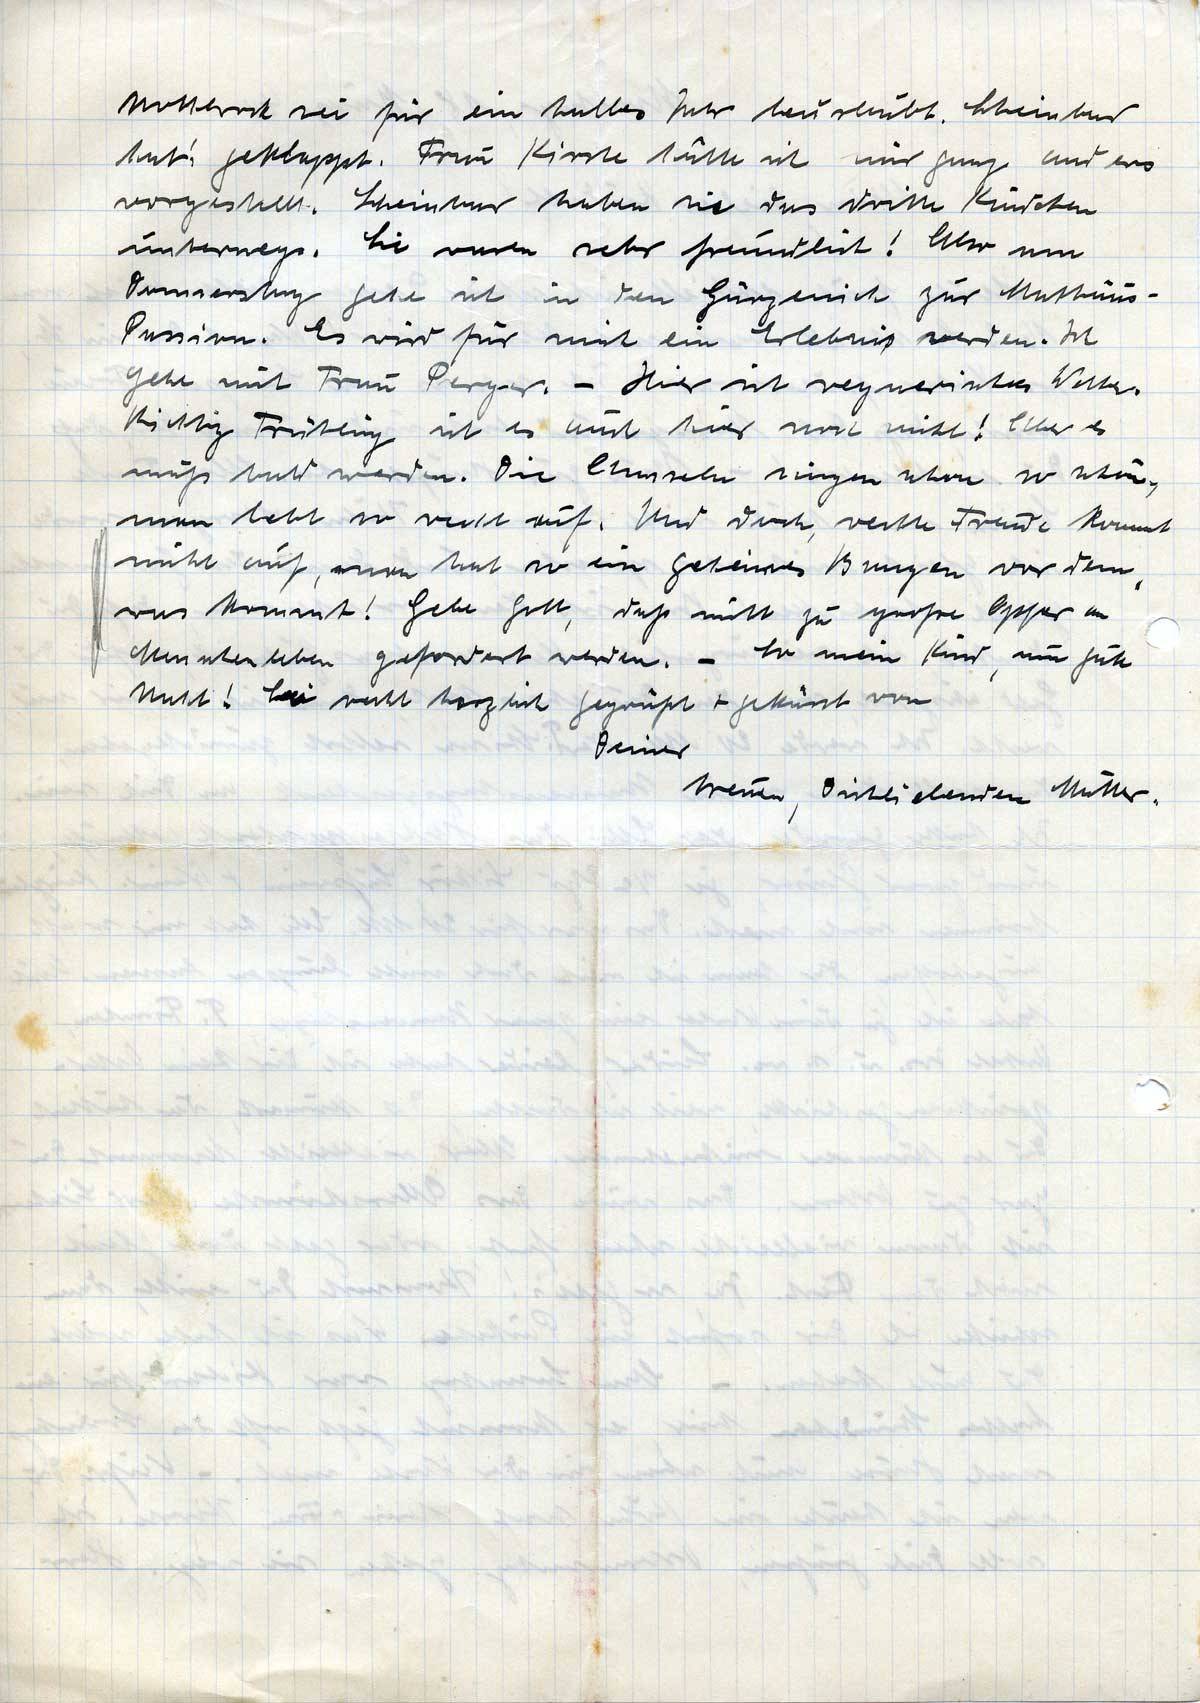 Molterock sei für ein halbes Jahr beurlaubt. Scheinbar
hat's geklappt. Frau Kirste hätte ich mir ganz anders
vorgestellt. Scheinbar haben sie das dritte Kindchen
unterwegs. Sie waren sehr freundlich! Also am
Donnerstag gehe ich in den Gürzenich zur Matthäus-
Passion. Es wird für mich ein Erlebnis werden. Ich
gehe mit Frau Perger. – Hier ist regnerisches Wetter.
Richtig Frühling ist es auch hier noch nicht! Aber es
muß bald werden. Die Amseln singen schon so schön,
man lebt so recht auf. Und doch, rechte Freude kommt
nicht auf, man hat so ein geheimes Bangen vor dem,
was kommt! Gebe Gott, daß nicht zu große Opfer an
Menschenleben gefordert werden. – So mein Kind, nun gute
Nacht! Sei recht herzlich gegrüßt + geküsst von
Deiner
treuen, Dichliebenden Mutter.